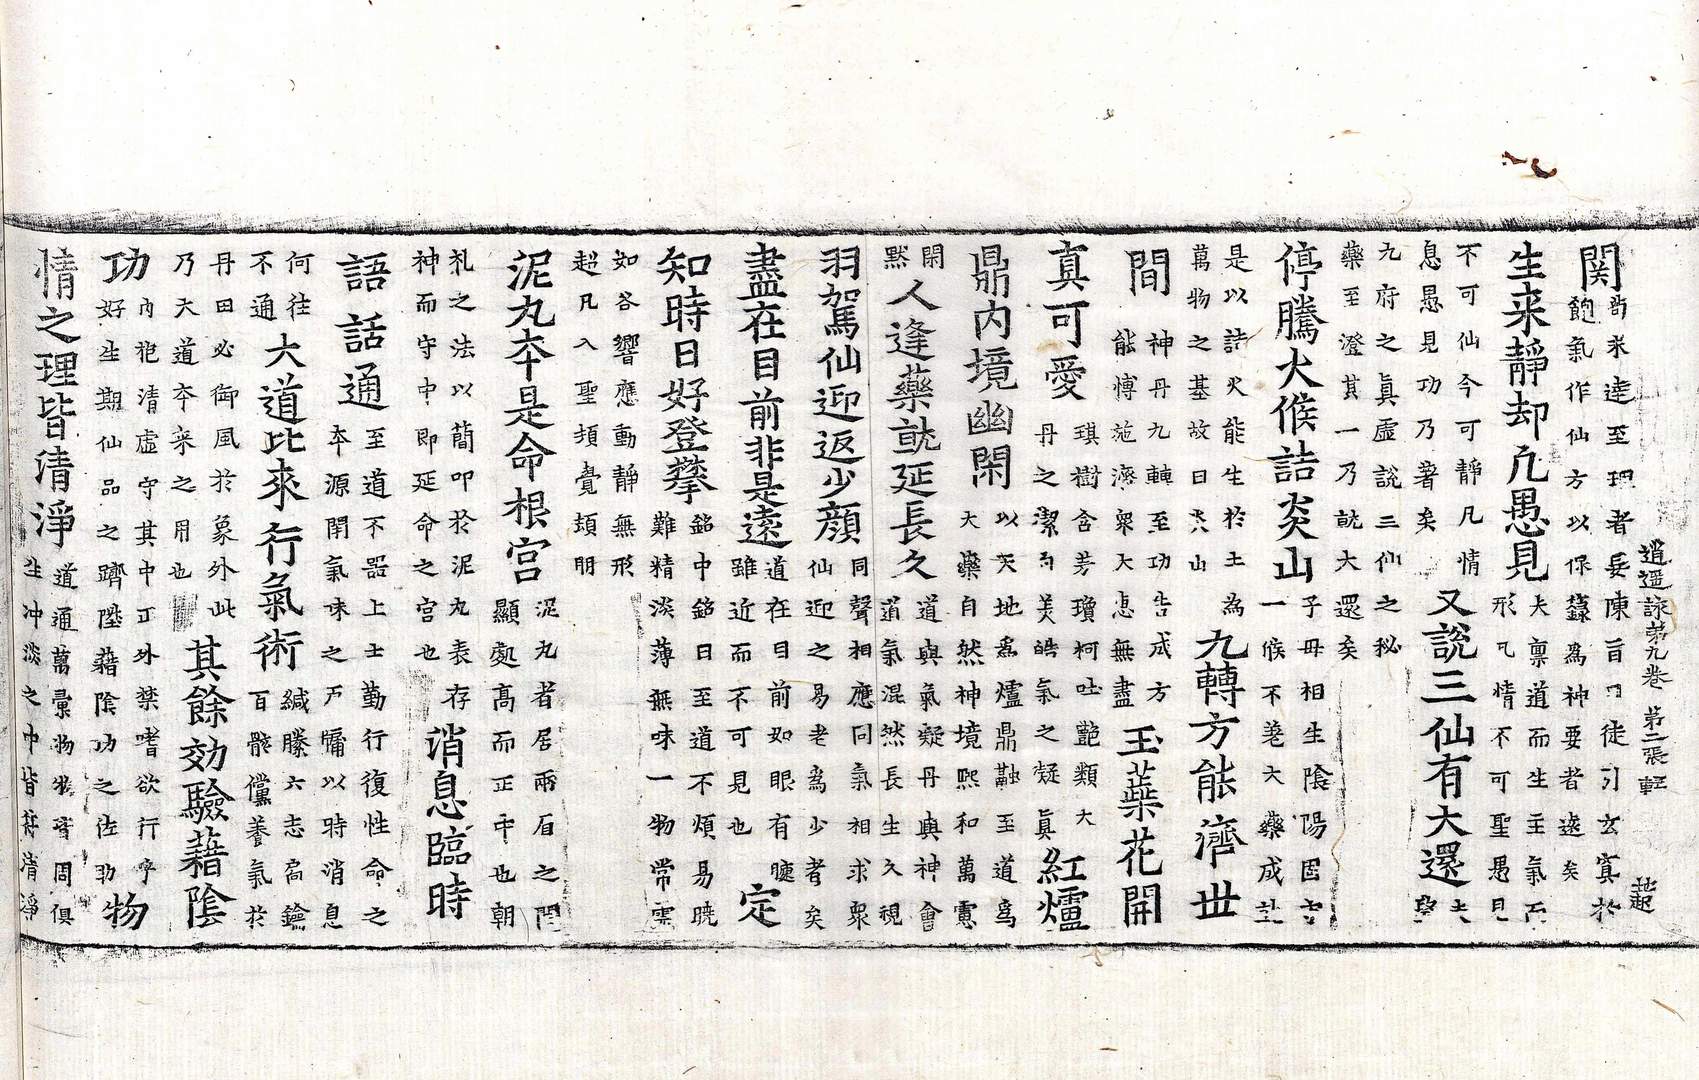 逍遥詠苐九卷 第二張 䡖 起
関 尚未達至理者妄陳旨日徒引玄寘於
飽氣作仙方以保籙為神要者遠矣
生来靜却凢愚見 夫禀道而生主氣而
形凢情不可聖愚見
不可仙今可靜凡情
息愚見功乃著矣 又說三仙有大還
九府之真虛説三仙之秘
藥至澄其一乃就大還矣
停騰火候詰炎山 子母相生陰陽因
一候不差大藥成
是以詰火能生於土為
萬物之基故曰炎山 九轉方能濟世
間 神丹九轉至功告成方
能愽施濟衆大悳無盡 玉蘂花開
真可愛 琪樹含芳瓊柯吐艶類大
丹之潔白美皓氣之凝真 紅爐
鼎内境幽閑 以天地爲爐鼎融至道爲
大藥自然神境熙和萬慮
閑
黙 人逢藥就延長久 道與氣凝丹與神會
道氣混然長生久視
羽駕仙迎返少顔 同聲相應同氣相求衆
仙迎之易老爲少者矣
盡在目前非是遠 道在目前如眼有睫
雖近而不可見也 定
知時日好登攀 銘中銘曰至道不煩易曉
難精淡薄無味一物常雲
如谷響應動靜無形
超凡入聖頓覺頴明
泥丸夲是命根宮 泥丸者居兩眉之間
顯處高而正中也朝
札之法以蕳叩於泥丸表存
神而守中即延命之宮也 消息臨時
語話通 至道不噐上士勤行復性命之
夲源閉氣味之戸牖以時消息
何往
不通 大道比來行氣術 緘縢六志扄鐍
百骸儻養氣於
丹田必御風於象外此
乃大道夲来之用也 其餘効驗藉陰
功 内抱清虛守其中正外禁嗜欲行乎
好生期仙品之躋陞藉隂功之佐助 物
情之理皆清淨 道通萬彚物物咨周俱
生冲淡之中皆禀清淨